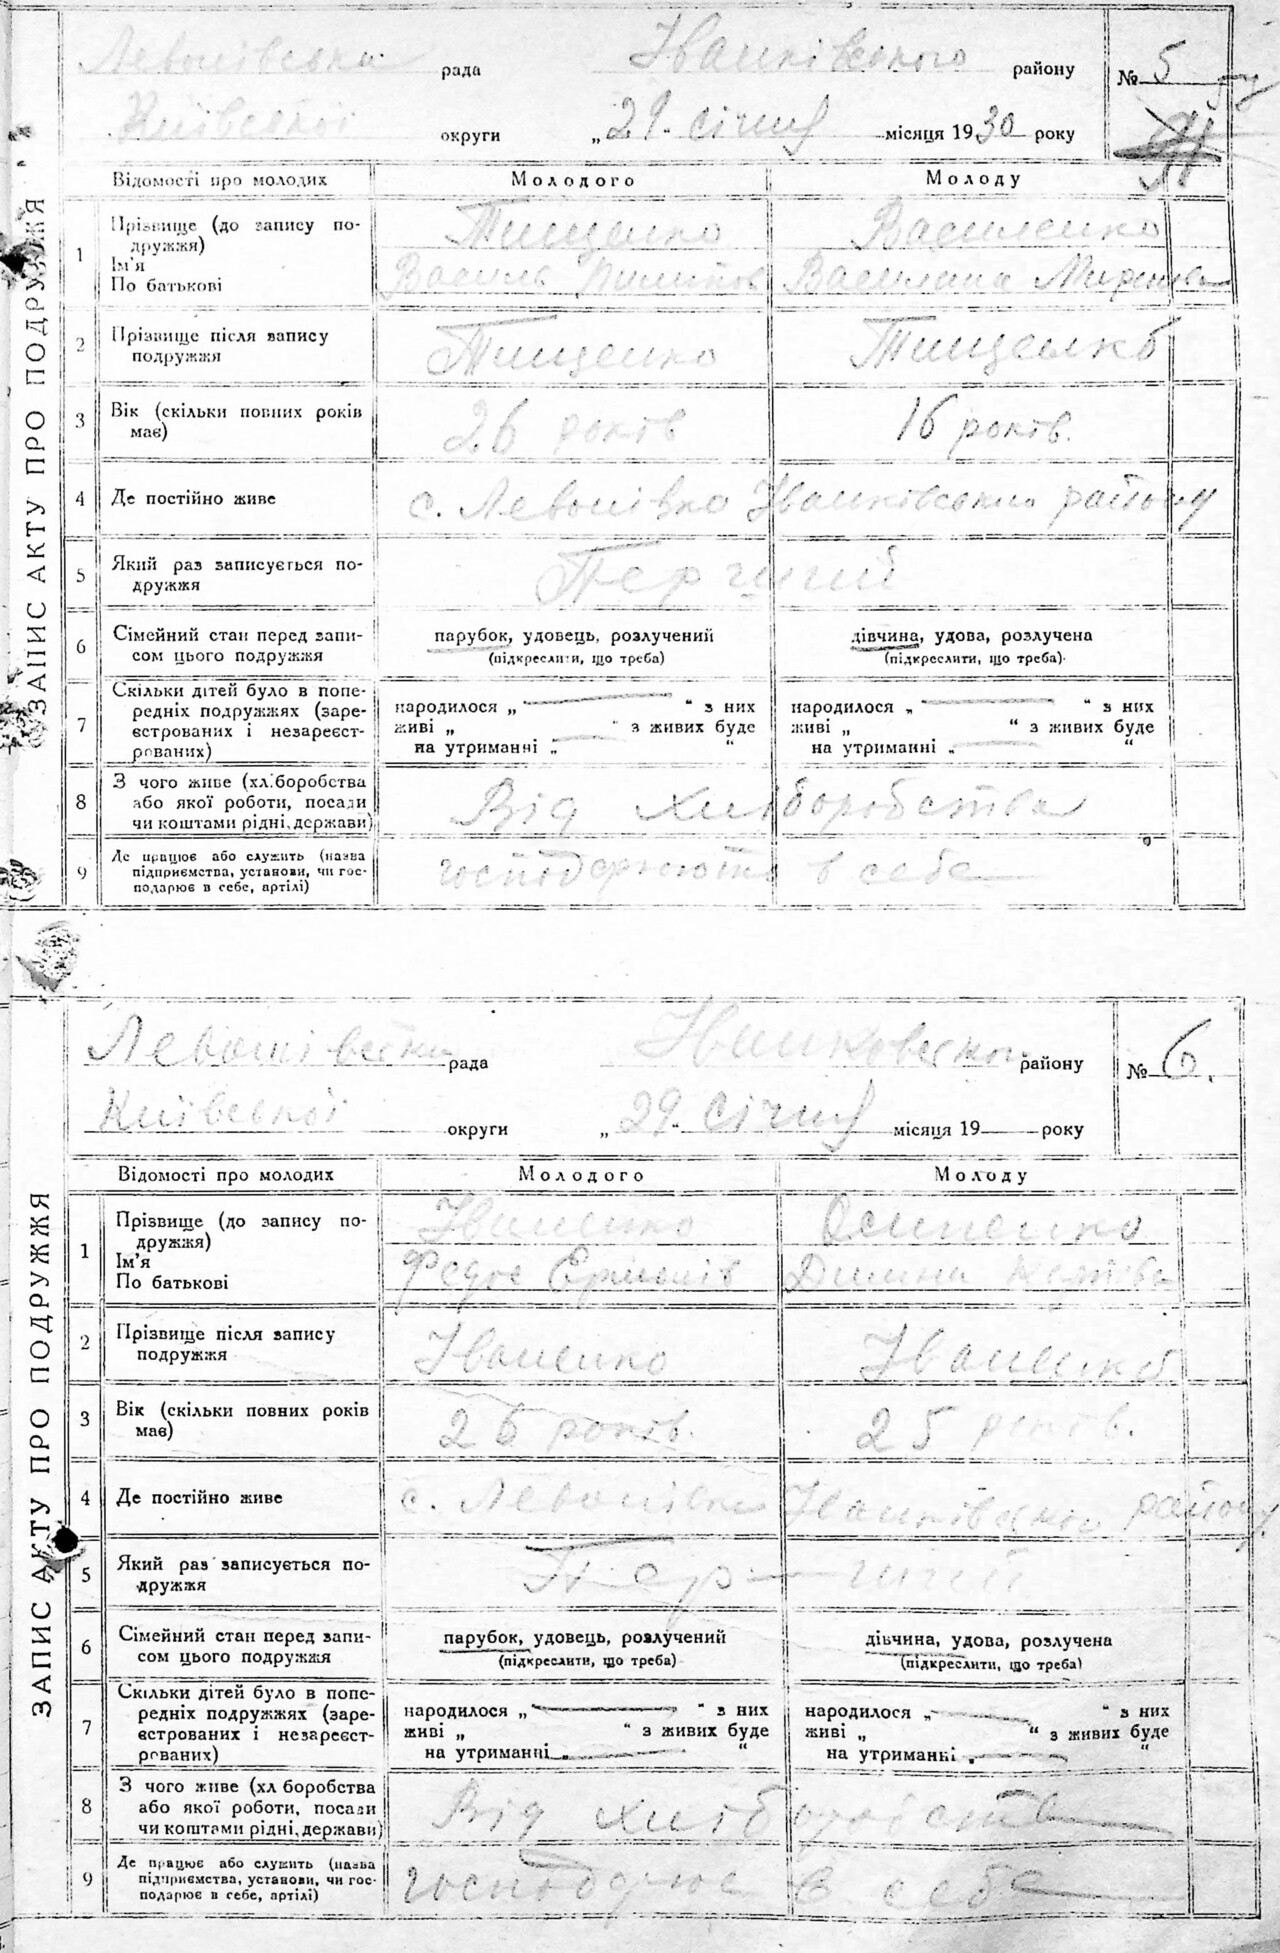 ЗАПИС АКТУ ПРО ПОДРУЖЖЯ
Левонівська рада Іванківського району № 5
Київської округи „29“ січня місяця 1930 року
Відомості про молодих Молодого Молоду
1 Прізвище (до запису по-
дружжя) Тищенко Василенко
Ім'я
По батькові Василь Василина
2 Прізвище після запису
подружжя Тищенко Тищенко
3 Вік (скільки повних років
має) 26 років 16 років.
4 Де постійно живе с. Левонівка Іванківського району
5 Який раз записується по-
дружжя Перший
6 Сімейний стан перед запи-
сом цього подружжя парубок, удовець, розлучений дівчина, удова, розлучена
(підкреслити, що треба) (підкреслити, що треба)
7 Скільки дітей було в попе-
редніх подружжях (заре-
єстрованих і незареєст-
рованих) народилося „ — “ з них народилося „ — “ з них
живі „ “ з живих буде живі „ “ з живих буде
на утриманні „ “ на утриманні „ “
8 З чого живе (хліборобства
або якої роботи, посади
чи коштами рідні, держави) Від хліборобства
9 Де працює або служить (назва
підприємства, установи, чи гос-
подарює в себе, артілі) господарюють в себе
ЗАПИС АКТУ ПРО ПОДРУЖЖЯ
Левонівська рада району № 6.
Київської округи „29“ січня місяця 19— року
Відомості про молодих Молодого Молоду
1 Прізвище (до запису по-
дружжя) Іваненко
Ім'я
По батькові Федір
2 Прізвище після запису
подружжя Іваненко Іваненко
3 Вік (скільки повних років
має) 26 років. 25 років.
4 Де постійно живе с. Левонівка Іванківського району
5 Який раз записується по-
дружжя Перший
6 Сімейний стан перед запи-
сом цього подружжя парубок, удовець, розлучений дівчина, удова, розлучена
(підкреслити, що треба) (підкреслити, що треба)
7 Скільки дітей було в попе-
редніх подружжях (заре-
єстрованих і незареєст-
рованих) народилося „ — “ з них народилося „ — “ з них
живі „ “ з живих буде живі „ “ з живих буде
на утриманні „ “ на утриманні „ “
8 З чого живе (хл боробства
або якої роботи, посади
чи коштами рідні, держави) Від хліборобства
9 Де працює або служить (назва
підприємства, установи, чи гос-
подарює в себе, артілі) господарює в себе